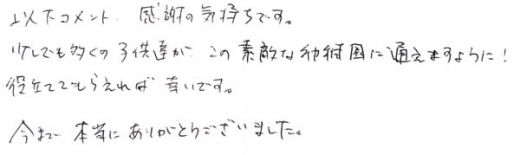 以下コメント. 感謝の気持ちです。
少しでも多くの子供達が、この素敵な幼稚園に通えますように！
役立ててもらえれば 幸いです。
今まで 本当に ありがとうございました。